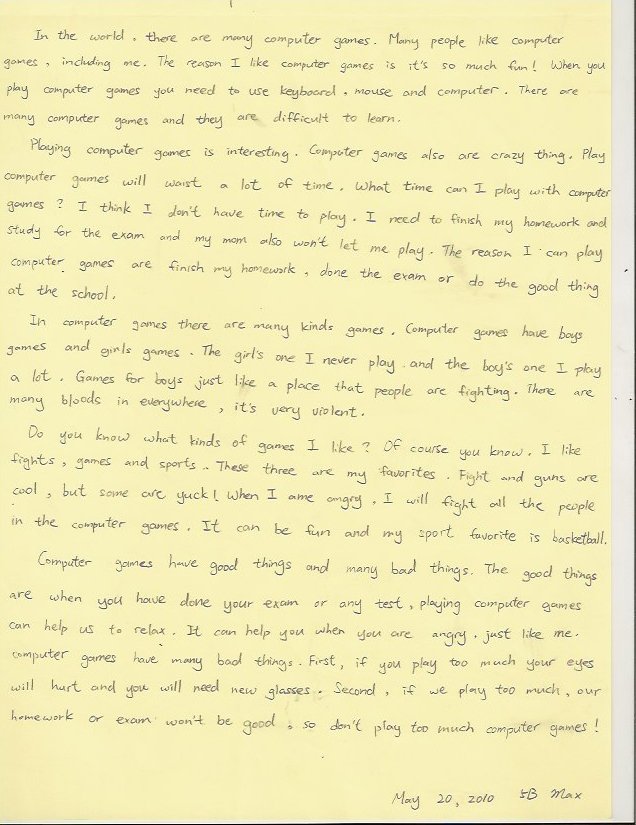 In the world, there are many computer games. Many people like computer
games, including me. The reason I like computer games is it's so much fun! When you
play computer games you need to use keyboard, mouse and computer. There are
many computer games and they are difficult to learn.
Playing computer games is interesting. Computer games also are crazy thing. Play
computer games will waist a lot of time. What time can I play with computer
games? I think I don't have time to play. I need to finish my homework and
study for the exam and my mom also won't let me play. The reason I can play
computer games are finish my homework, done the exam or do the good thing
at the school.
In computer games there are many kinds games. Computer games have boys
games and girls games. The girl's one I never play and the boy's one I play
a lot. Games for boys just like a place that people are fighting. There are
many bloods in everywhere, it's very violent.
Do you know what kinds of games I like? Of course you know. I like
fights, games and sports.. These three are my favorites. Fight and guns are
cool, but some are yuck! When I ame angry, I will fight all the people
in the computer games. It can be fun and my sport favorite is basketball.
Computer games have good things and many bad things. The good things
are when you have done your exam or any test, playing computer games
can help us to relax. It can help you when you are angry, just like me.
Computer games have many bad things. First, if you play too much your eyes
will hurt and you will need new glasses. Second, if we play too much, our
homework or exam won't be good, so don't play too much computer games!
May 20, 2010 5B Max